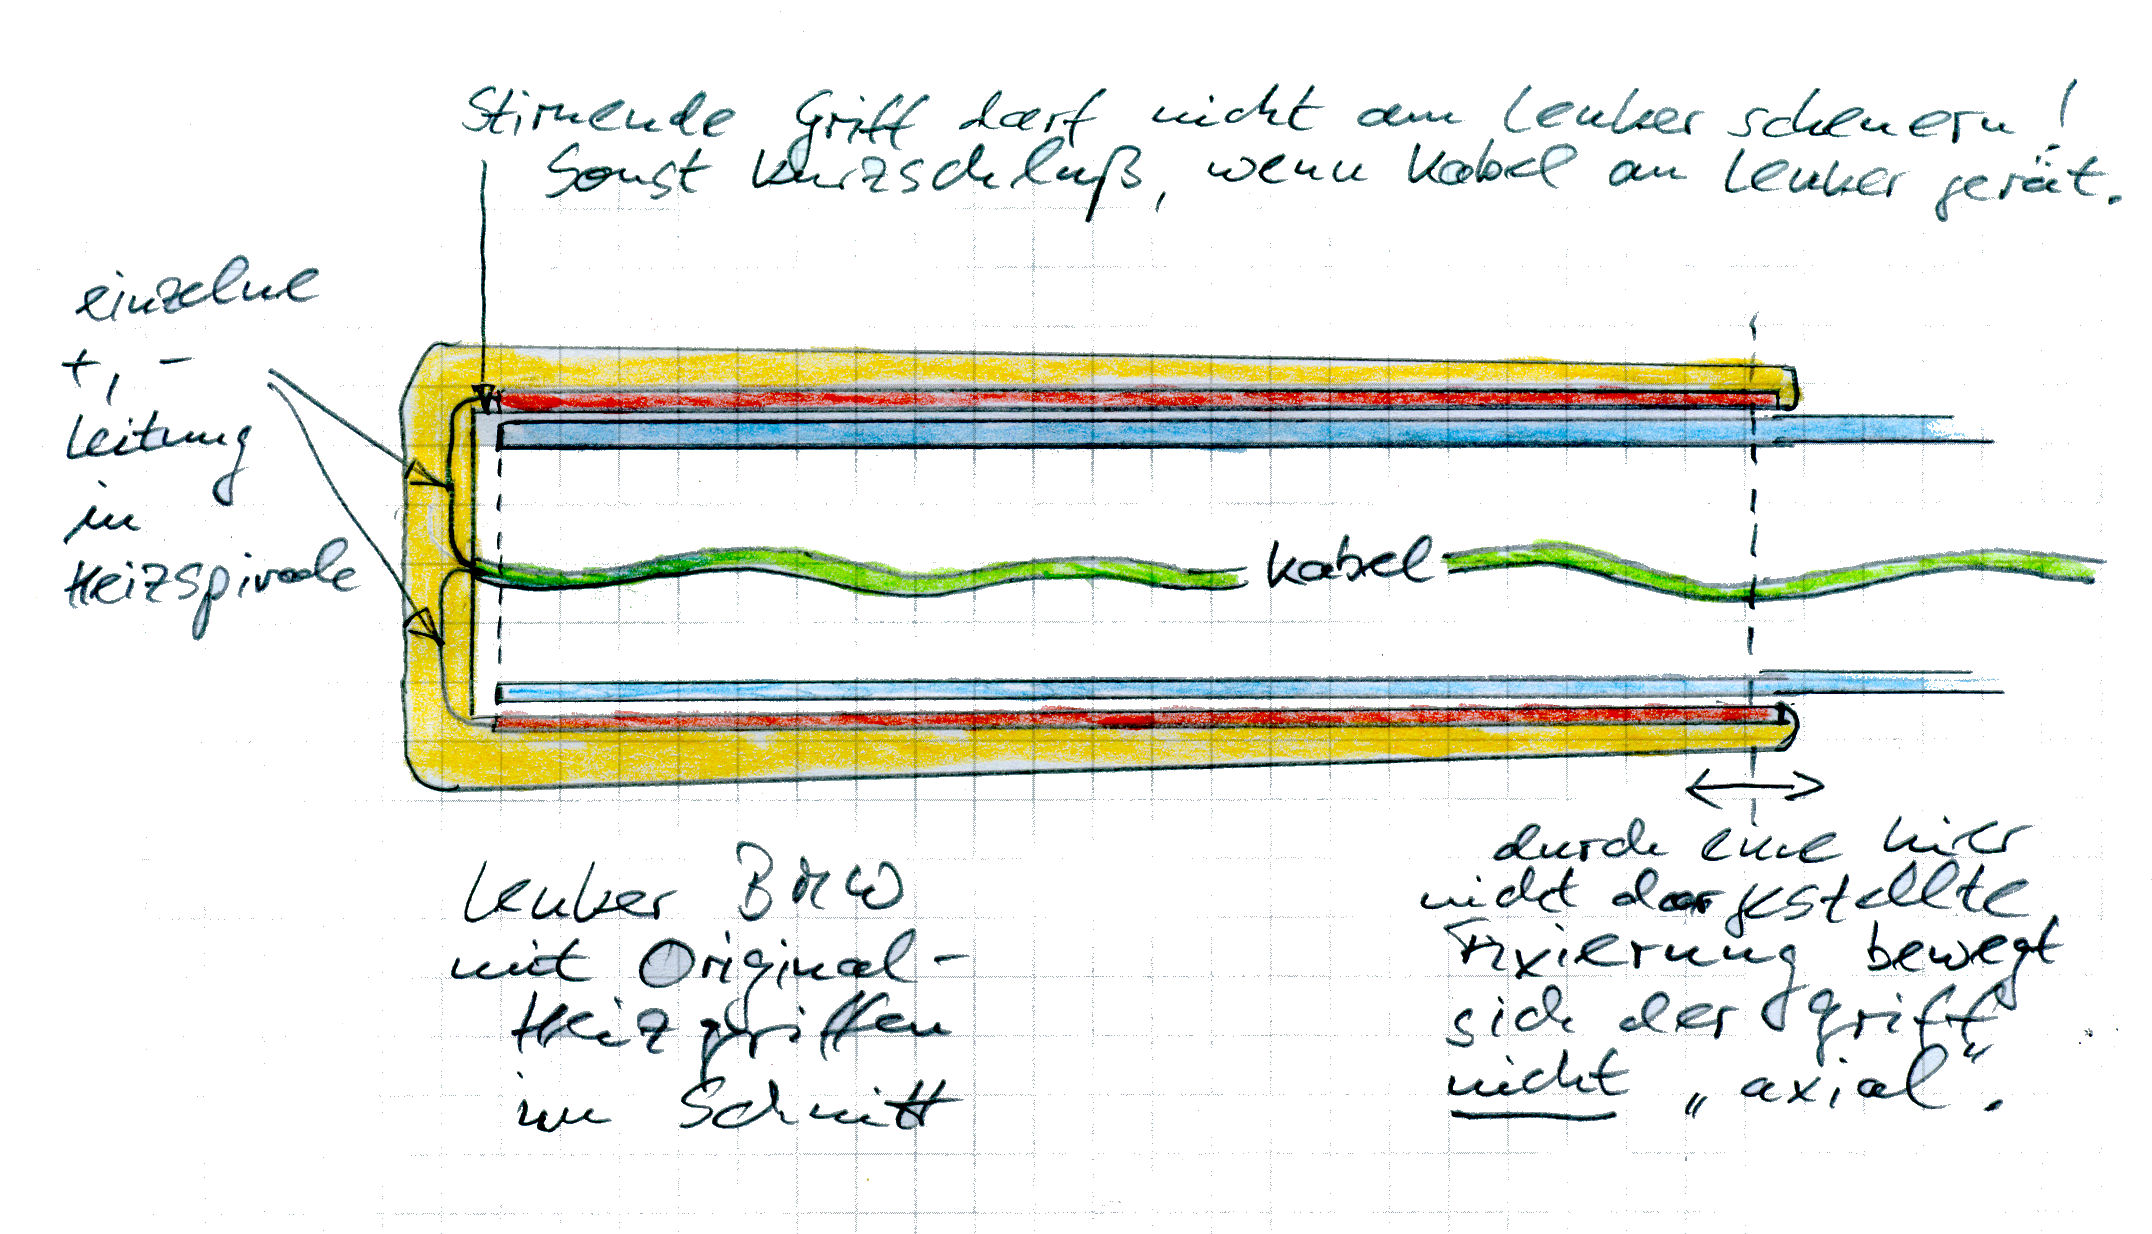 Stirnende Griff darf nicht am Lenker scheuern!
Sonst Kurzschluß, wenn Kabel an Lenker gerät.
einzelne
+, -
Leitung
in
Heizspirale
Kabel
Lenker BMW
mit Original-
Heizgriffen
im Schnitt
durch eine hier
nicht dargestellte
Fixierung bewegt
sich der Griff
nicht „axial".